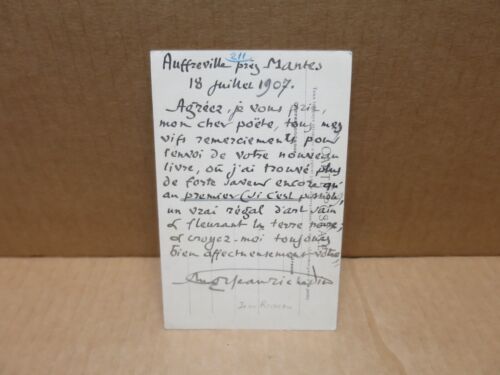 211
Auffreville près Mantes
18 juillet 1907.
Agréez, je vous prie,
mon cher poëte, tous mes
vifs remerciements pour
l'envoi de votre nouveau
livre, où j'ai trouvé plus
de forte saveur encore qu'
au premier (si c'est possible),
un vrai régal d'art sain
& fleurant la terre
& croyez-moi toujours
bien affectueusement vôtre
Jean